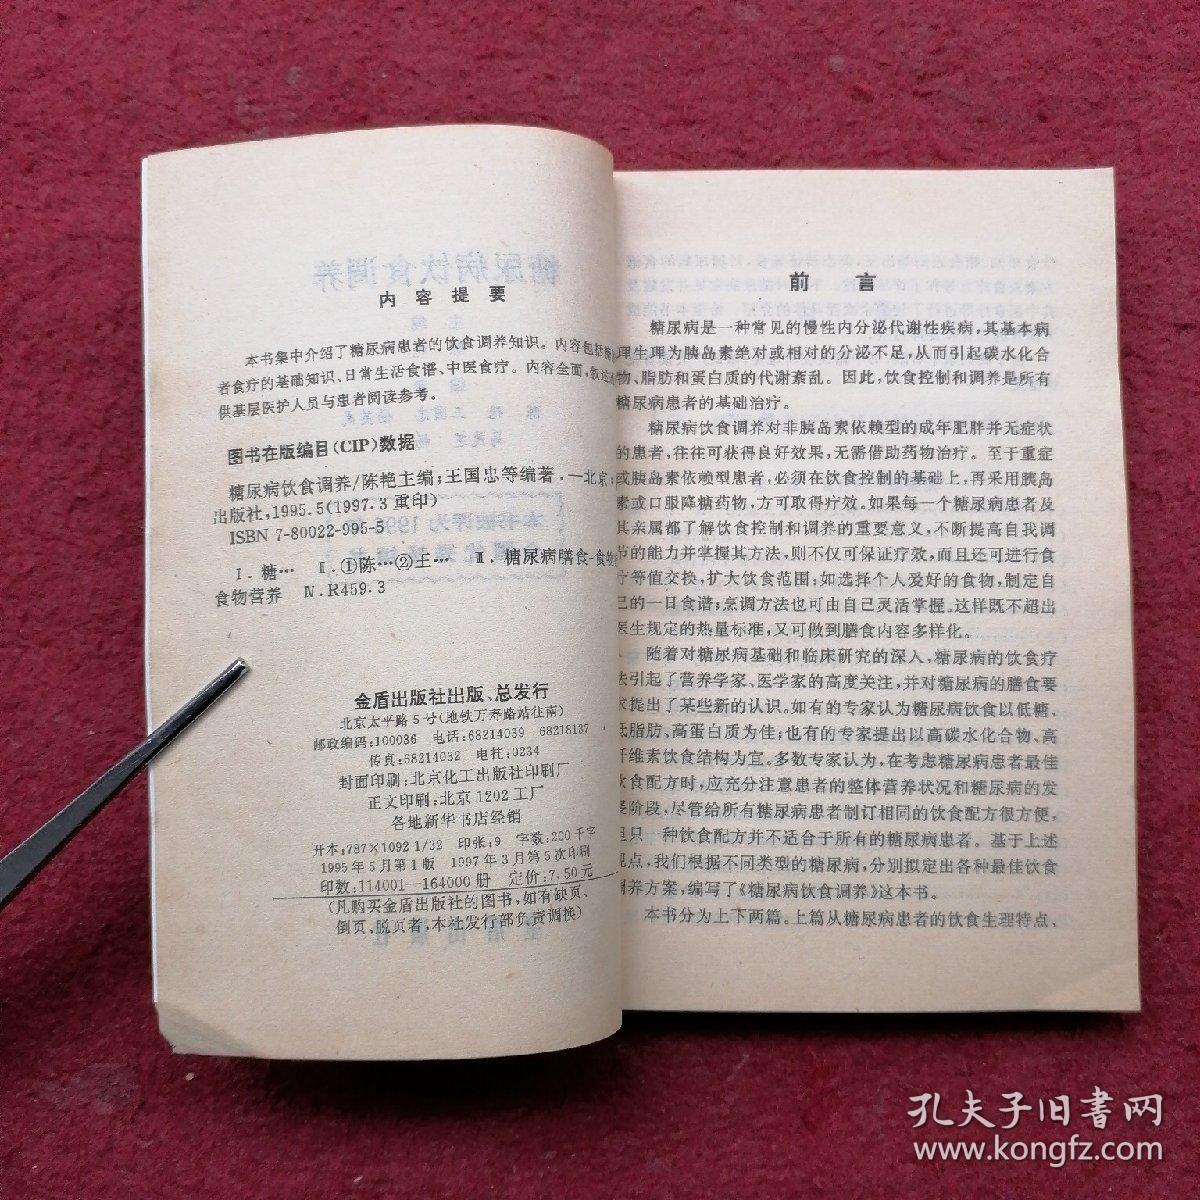 内容提要
本书集中介绍了糖尿病患者的饮食调养知识。内容包括
者食疗的基础知识、日常生活食谱、中医食疗。内容全面,叙述
供基层医护人员与患者阅读参考。
图书在版编目(CIP)数据
糖尿病饮食调养/陈艳主编;王国忠等编著.—北京:
出版社,1995.5(1997.3重印)
ISBN 7-80022-995-5
Ⅰ.糖… Ⅱ.①陈…②王… Ⅲ.糖尿病膳食-食物
食物营养 Ⅳ.R459.3
金盾出版社出版、总发行
北京太平路5号(地铁万寿路站往南)
邮政编码:100036 电话:68214039 68218137
传真:68214032 电挂:0234
封面印刷:北京化工出版社印刷厂
正文印刷:北京1202工厂
各地新华书店经销
开本:787×1092 1/32 印张:9 字数:200千字
1995年5月第1版 1997年3月第5次印刷
印数:114001—164000册 定价:7.50元
(凡购买金盾出版社的图书,如有缺页、
倒页,脱页者,本社发行部负责调换)
前言
糖尿病是一种常见的慢性内分泌代谢性疾病,其基本病
理生理为胰岛素绝对或相对的分泌不足,从而引起碳水化合
物、脂肪和蛋白质的代谢紊乱。因此,饮食控制和调养是所有
糖尿病患者的基础治疗。
糖尿病饮食调养对非胰岛素依赖型的成年肥胖并无症状
的患者,往往可获得良好效果,无需借助药物治疗。至于重症
或胰岛素依赖型患者,必须在饮食控制的基础上,再采用胰岛
素或口服降糖药物,方可取得疗效。如果每一个糖尿病患者及
其亲属都了解饮食控制和调养的重要意义,不断提高自我调
节的能力并掌握其方法,则不仅可保证疗效,而且还可进行食
疗等值交换,扩大饮食范围;如选择个人爱好的食物,制定自
己的一日食谱;烹调方法也可由自己灵活掌握。这样既不超出
医生规定的热量标准,又可做到膳食内容多样化。
随着对糖尿病基础和临床研究的深入,糖尿病的饮食疗
法引起了营养学家、医学家的高度关注,并对糖尿病的膳食要
求提出了某些新的认识。如有的专家认为糖尿病饮食以低糖、
低脂肪、高蛋白质为佳;也有的专家提出以高碳水化合物、高
纤维素饮食结构为宜。多数专家认为,在考虑糖尿病患者最佳
饮食配方时,应充分注意患者的整体营养状况和糖尿病的发
展阶段,尽管给所有糖尿病患者制订相同的饮食配方很方便,
但只一种饮食配方并不适合于所有的糖尿病患者。基于上述
观点,我们根据不同类型的糖尿病,分别拟定出各种最佳饮食
调养方案,编写了《糖尿病饮食调养》这本书。
本书分为上下两篇。上篇从糖尿病患者的饮食生理特点、
孔夫子旧书网
www.kongfz.com